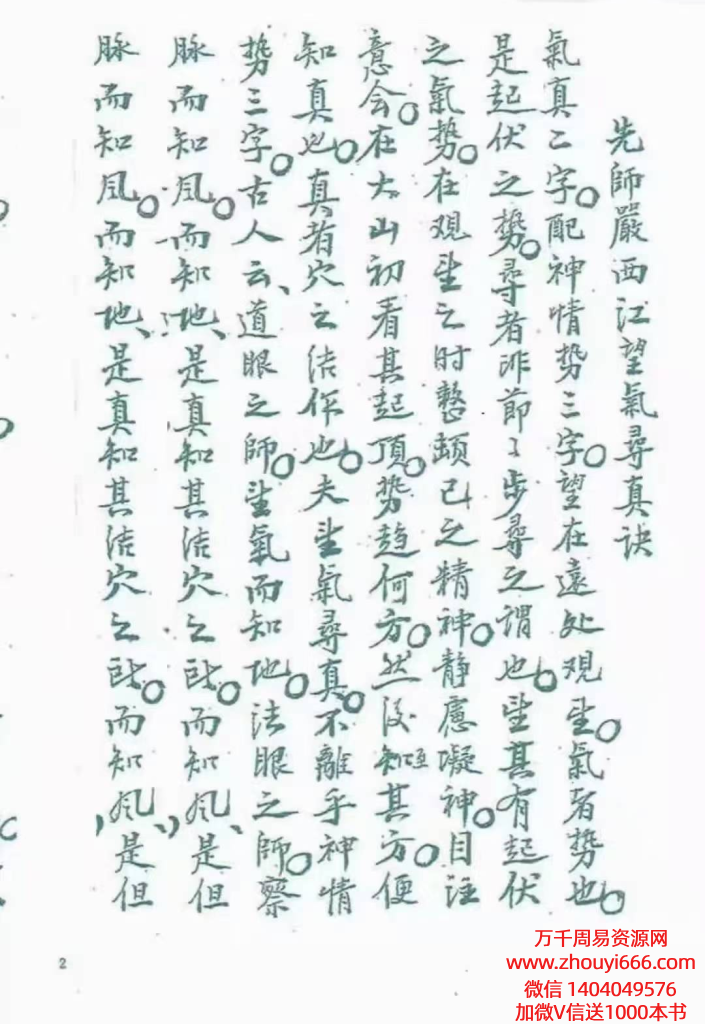 先師嚴西江望氣尋真訣
氣真二字。配神情势三字。望在遠处观望。氣者势也。
是起伏之势。尋者非節々步尋之謂也。望其有起伏
之氣势。在观望之时整頓己之精神。静慮凝神。目注
意会。在大山初看其起頂。势趋何方。然後知至其方。便
知真也。真者穴之洁作也。夫望氣尋真。不離乎神情
势三字。古人云、道眼之師。望氣而知地。法眼之師。察
脉而知風。而知地、是真知其洁穴之。而知风、是但
脉而知風。而知地、是真知其洁穴之。而知风、是但
2
万千周易资源网
www.zhouyi666.com
微信 1404049576
加微V信送1000本书